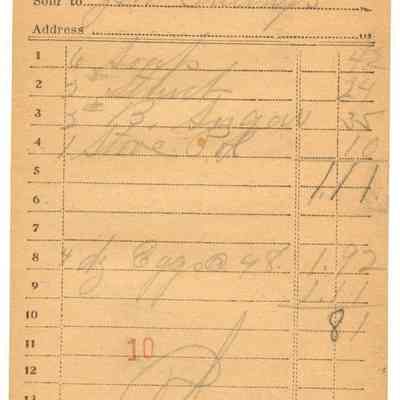 Sold to
Address
1 6 Soap 42
2 3 lb Starch 24
3 5 lb B. Sugar 35
4 1 Stove Pol 10
5 1.11
6
7
8 4 dz Eggs @ 48 1.92
9 1.11
10 81
11 10
12
13